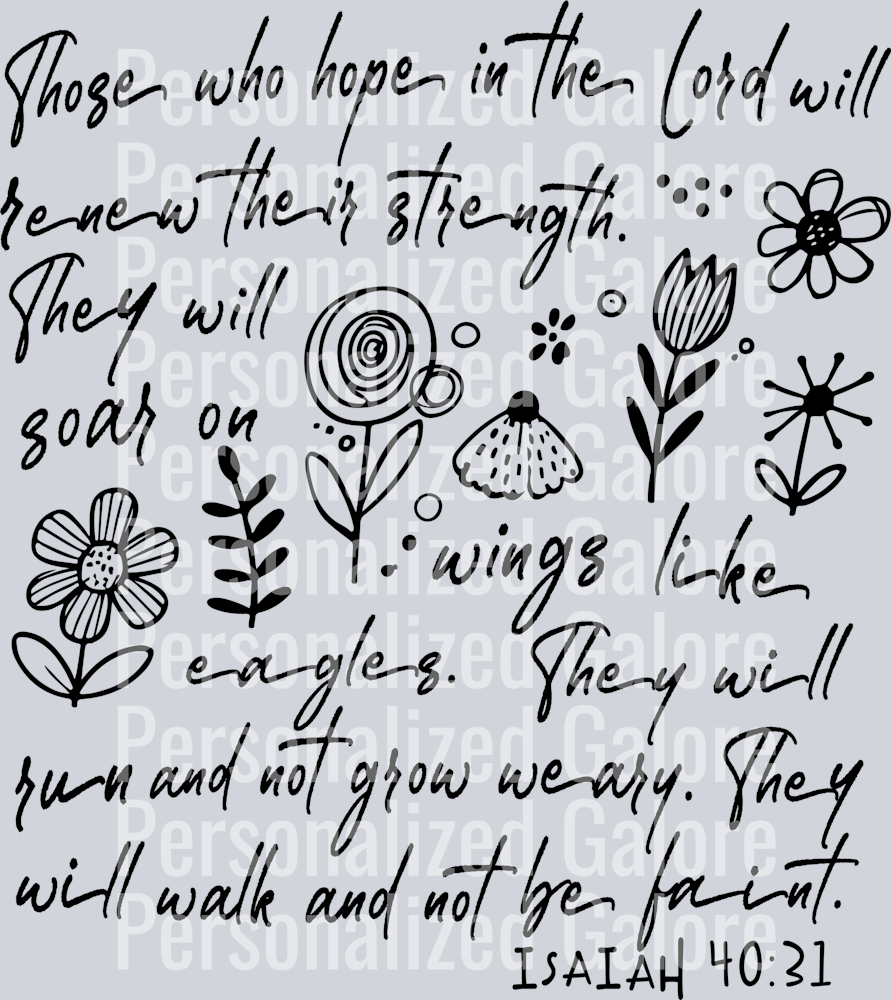 Those who hope in the Lord will
renew their strength.
They will
soar on
wings like
eagles. They will
run and not grow weary. They
will walk and not be faint.
ISAIAH 40:31
Personalized Galore
Personalized Galore
Personalized Galore
Personalized Galore
Personalized Galore
Personalized Galore
Personalized Galore
Personalized Galore
Personalized Galore
Personalized Galore